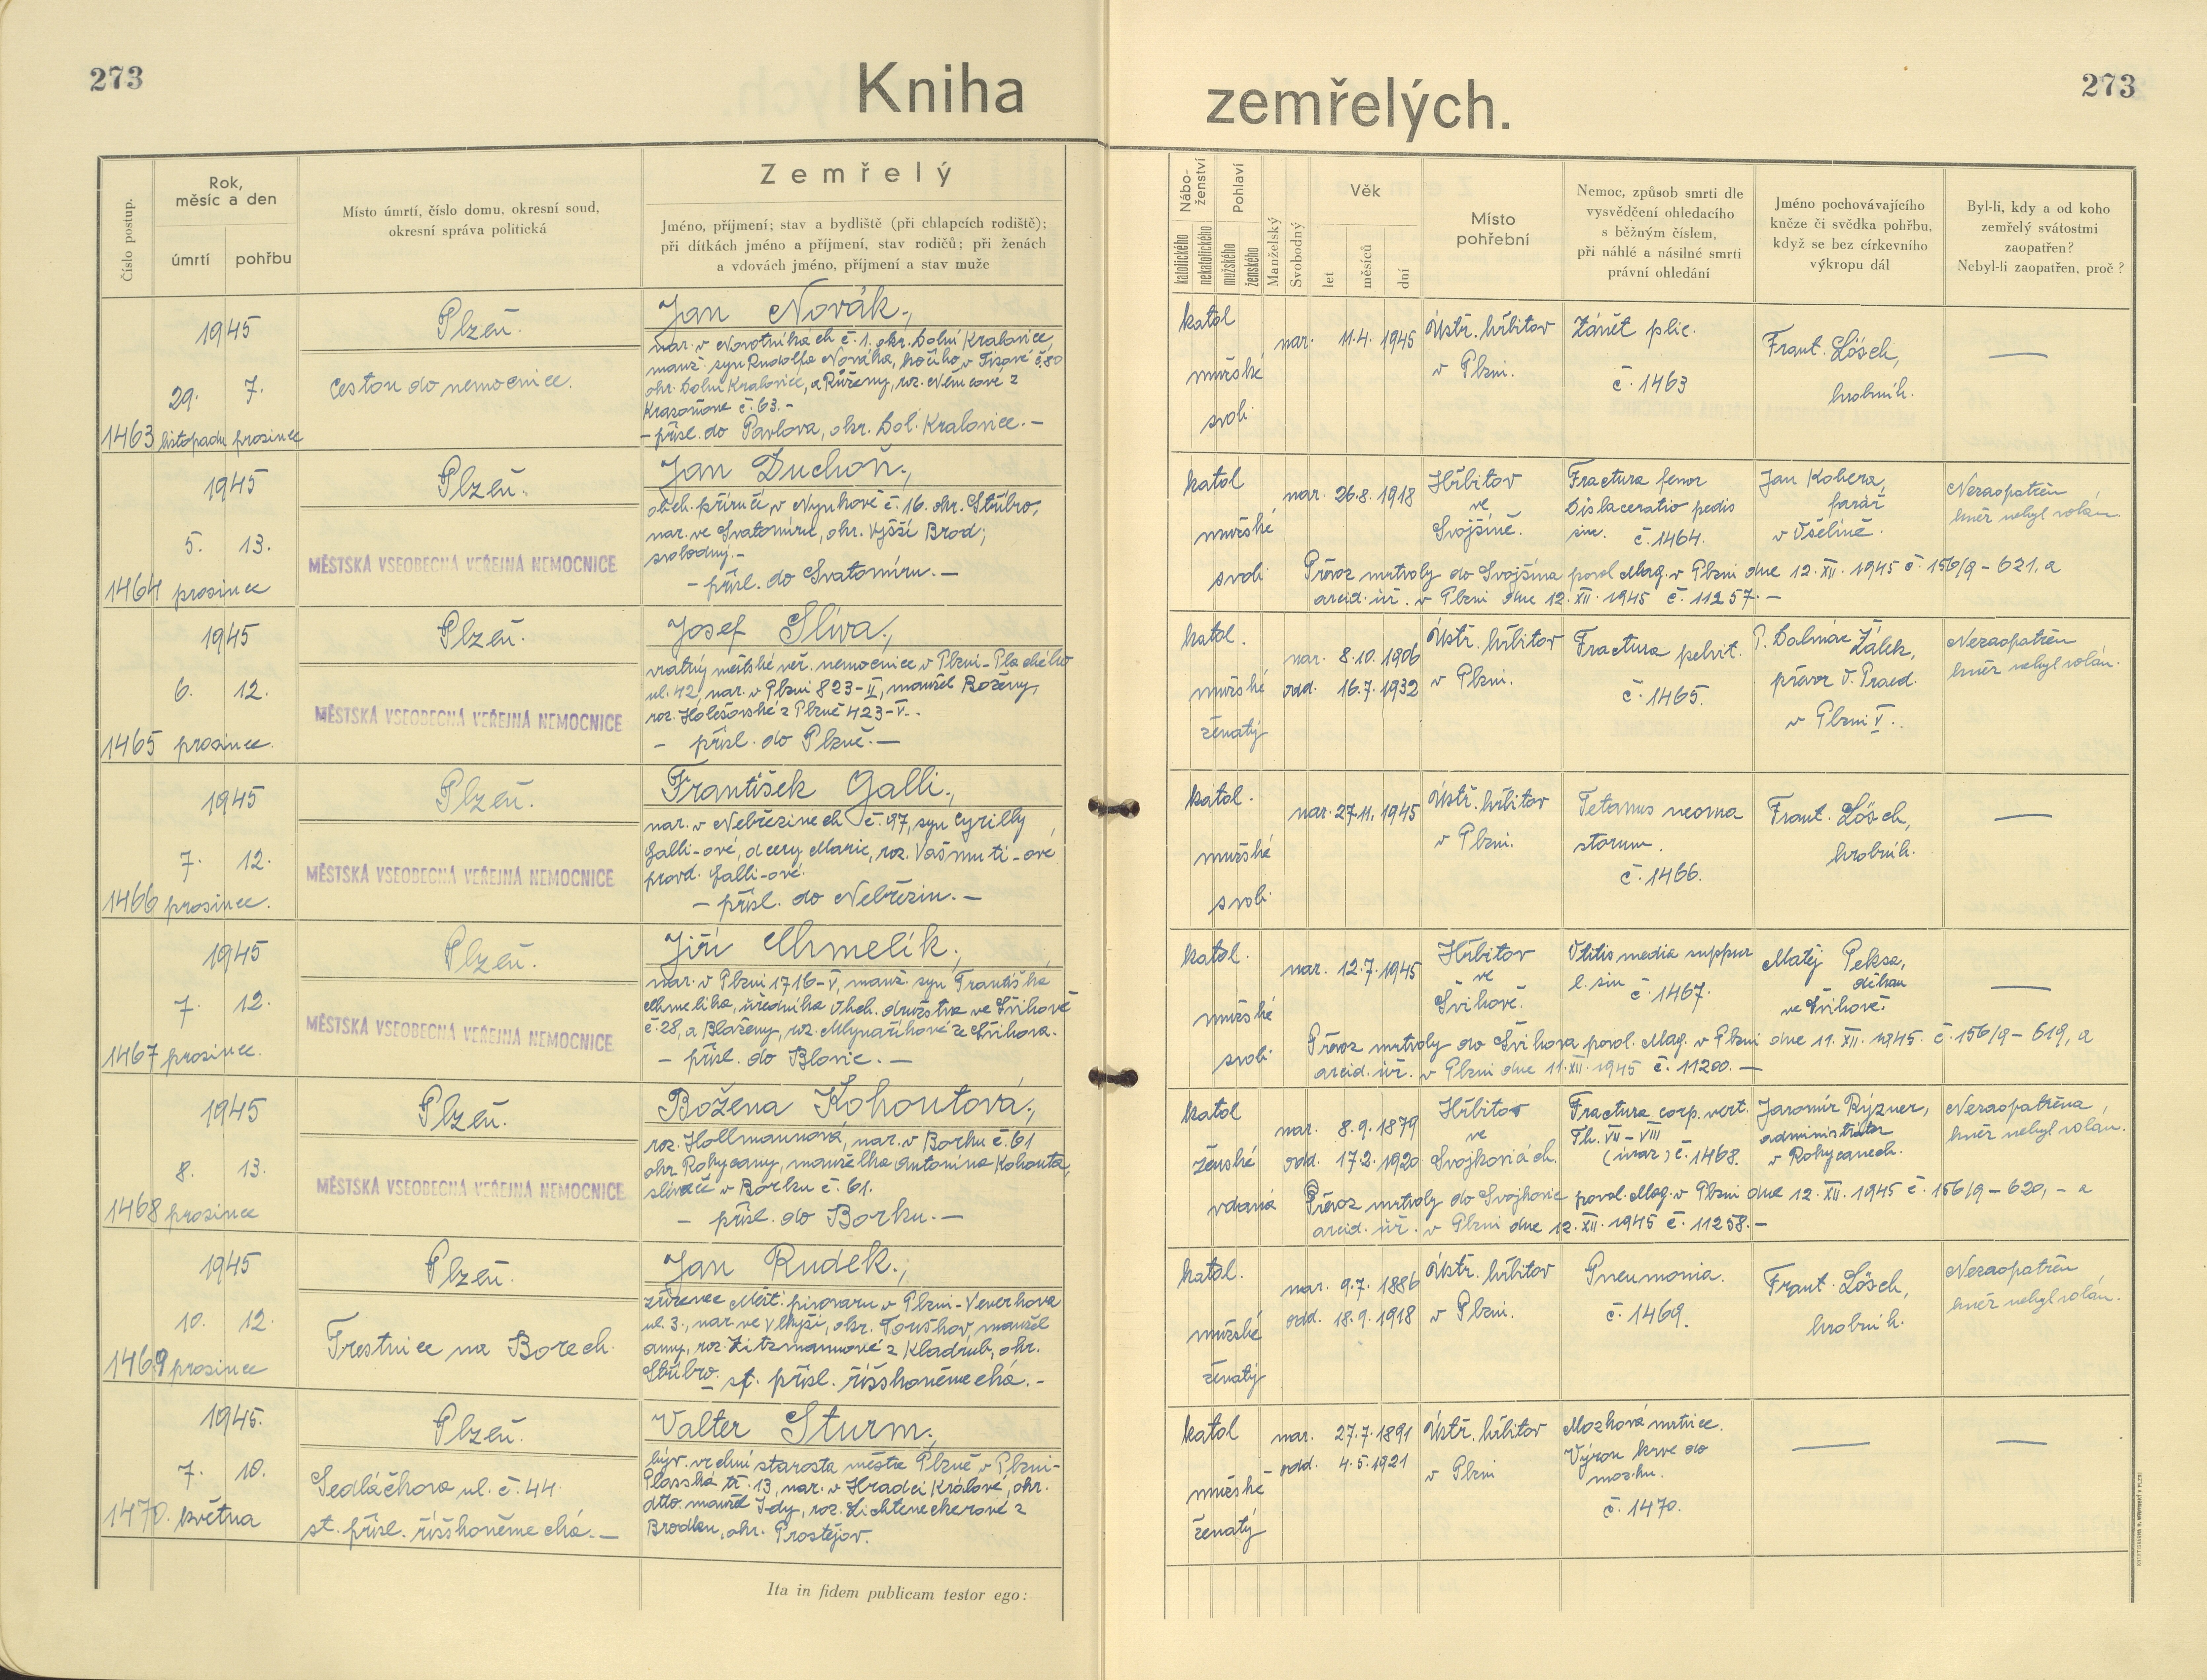 273
Kniha
zemřelých.
273
Číslo postup.
Rok,
měsíc a den
úmrtí
pohřbu
Místo úmrtí, číslo domu, okresní soud,
okresní správa politická
Zemřelý
Jméno, příjmení; stav a bydliště (při chlapcích rodiště);
při dítkách jméno a příjmení, stav rodičů; při ženách
a vdovách jméno, příjmení a stav muže
Nábo-
ženství
katolického
nekatolického
Pohlaví
mužského
ženského
Manželský
Svobodný
Věk
let
měsíců
dní
Místo
pohřební
Nemoc, způsob smrti dle
vysvědčení ohledacího
s běžným číslem,
při náhlé a násilné smrti
právní ohledání
Jméno pochovávajícího
kněze či svědka pohřbu,
když se bez církevního
výkropu dál
Byl-li, kdy a od koho
zemřelý svátostmi
zaopatřen?
Nebyl-li zaopatřen, proč?
1463
1945
29. 7.
listopadu prosince
Plzeň.
Cestou do nemocnice.
Jan Novák,
nar. v Novotinkách č. 1. okr. Dolní Kralovice,
manž. syn Rudolfa Nováka, kočího v Tisové č. 80
okr. Dolní Kralovice, a Růženy, roz. Němcové z
č. 63.-
- přísl. do Pavlova, okr. Dol. Kralovice. -
katol
mužské
svob.
nar. 11.4. 1945
Ústř. hřbitov
v Plzni.
Zánět plic.
č. 1463
Frant. Lösch,
hrobník.
—
1464
1945
5. 13.
prosince
Plzeň.
MĚSTSKÁ VŠEOBECNÁ VEŘEJNÁ NEMOCNICE
Jan Duchoň,
obch. příručí v Nynkově č. 16. okr. Stříbro,
nar. ve Svatomíru, okr. Vyšší Brod;
svobodný.-
- přísl. do Svatomíru. -
katol
mužské
svob.
nar. 26.8. 1918
Hřbitov
ve
Svojšíně.
Fractura femor
Dislaceratio pedis
sin. č. 1464.
Jan Kobera,
farář
v Ošelíně.
Nezaopatřen
kněz nebyl volán.
Převoz mrtvoly do Svojšína povol. Mag. v Plzni dne 12. XII. 1945 č. 156/9 - 621, a
arcid. úř. v Plzni dne 12. XII. 1945 č. 11257. -
1465
1945
6. 12.
prosince.
Plzeň.
MĚSTSKÁ VŠEOBECNÁ VEŘEJNÁ NEMOCNICE
Josef Slíva,
vrátný městské veř. nemocnice v Plzni - Plachého
ul. 42, nar. v Plzni 823-II, manžel Boženy,
roz. Holešovské z Plzně 423-V.-
- přísl. do Plzně. -
katol.
mužské
ženatý
nar. 8.10. 1906
odd. 16.7. 1932
Ústř. hřbitov
v Plzni.
Fractura pelvit.
č. 1465.
P. Dalmác Žálek,
převor O. Praed.
v Plzni V.
Nezaopatřen
kněz nebyl volán.
1466
1945
7. 12.
prosince.
Plzeň.
MĚSTSKÁ VŠEOBECNÁ VEŘEJNÁ NEMOCNICE
František Galli,
nar. v Nebřezinech č. 97, syn Cyrilly
Galli-ové, dcery Marie, roz. Vašmuti-ové
provd. Galli-ové.
- přísl. do Nebřezin. -
katol.
mužské
svob.
nar. 27.11. 1945
Ústř. hřbitov
v Plzni.
Tetanus neona
storum.
č. 1466.
Frant. Lösch,
hrobník.
—
1467
1945
7. 12.
prosince.
Plzeň.
MĚSTSKÁ VŠEOBECNÁ VEŘEJNÁ NEMOCNICE
Jiří Chmelík,
nar. v Plzni 1716-V, manž. syn Františka
Chmelíka, úředníka Obch. družstva ve Švihově
č. 28, a Blaženy, roz. Mlynaříkové ze Švihova.
- přísl. do Blovic. -
katol.
mužské
svob.
nar. 12.7. 1945
Hřbitov
ve
Švihově.
Otitis media suppur
l. sin č. 1467.
Matěj Peksa,
děkan
ve Švihově.
—
Převoz mrtvoly do Švihova povol. Mag. v Plzni dne 11. XII. 1945. č. 156/9 - 619, a
arcid. úř. v Plzni dne 11. XII. 1945 č. 11200. -
1468
1945
8. 13.
prosince
Plzeň.
MĚSTSKÁ VŠEOBECNÁ VEŘEJNÁ NEMOCNICE
Božena Kohoutová,
roz. Hollmannová, nar. v Borku č. 61
okr. Rokycany, manželka Antonína Kohouta,
slévače v Borku č. 61.
- přísl. do Borku. -
katol
ženské
vdaná
nar. 8.9. 1879
odd. 17.2. 1920
Hřbitov
ve
Svojkovicích.
Fractura corp. vert.
Th. VII - VIII
(úraz) č. 1468.
Jaromír Rýzner,
administrátor
v Rokycanech.
Nezaopatřena,
kněz nebyl volán.
Převoz mrtvoly do Svojkovic povol. Mag. v Plzni dne 12. XII. 1945 č. 156/9 - 620, - a
arcid. úř. v Plzni dne 12. XII. 1945 č. 11258. -
1469
1945
10. 12.
prosince
Plzeň.
Trestnice na Borech.
Jan Rudek,
zřízenec Měšť. pivovaru v Plzni - Veverkova
ul. 3., nar. ve Vlkýši, okr. Touškov, manžel
Anny, roz. Zitzmannové z Kladrub, okr.
Stříbro. - st. přísl. říšskoněmecká. -
katol.
mužské
ženatý
nar. 9.7. 1886
odd. 18.9. 1918
Ústř. hřbitov
v Plzni.
Pneumonia.
č. 1469.
Frant. Lösch,
hrobník.
Nezaopatřen
kněz nebyl volán.
1470.
1945.
7. 10.
května
Plzeň.
Sedláčkova ul. č. 44.
st. přísl. říšskoněmecká. -
Valter Sturm,
býv. vrchní starosta města Plzně v Plzni -
Plasská tř. 13, nar. v Hradci Králové, okr.
dtto. manžel Idy, roz. Lichteneckerové z
Brodku, okr. Prostějov.
katol
mužské
ženatý
nar. 27.7. 1891
odd. 4.5. 1921
Ústř. hřbitov
v Plzni
Mozková mrtvice.
Výron krve do
mozku.
č. 1470.
—
—
Ita in fidem publicam testor ego: